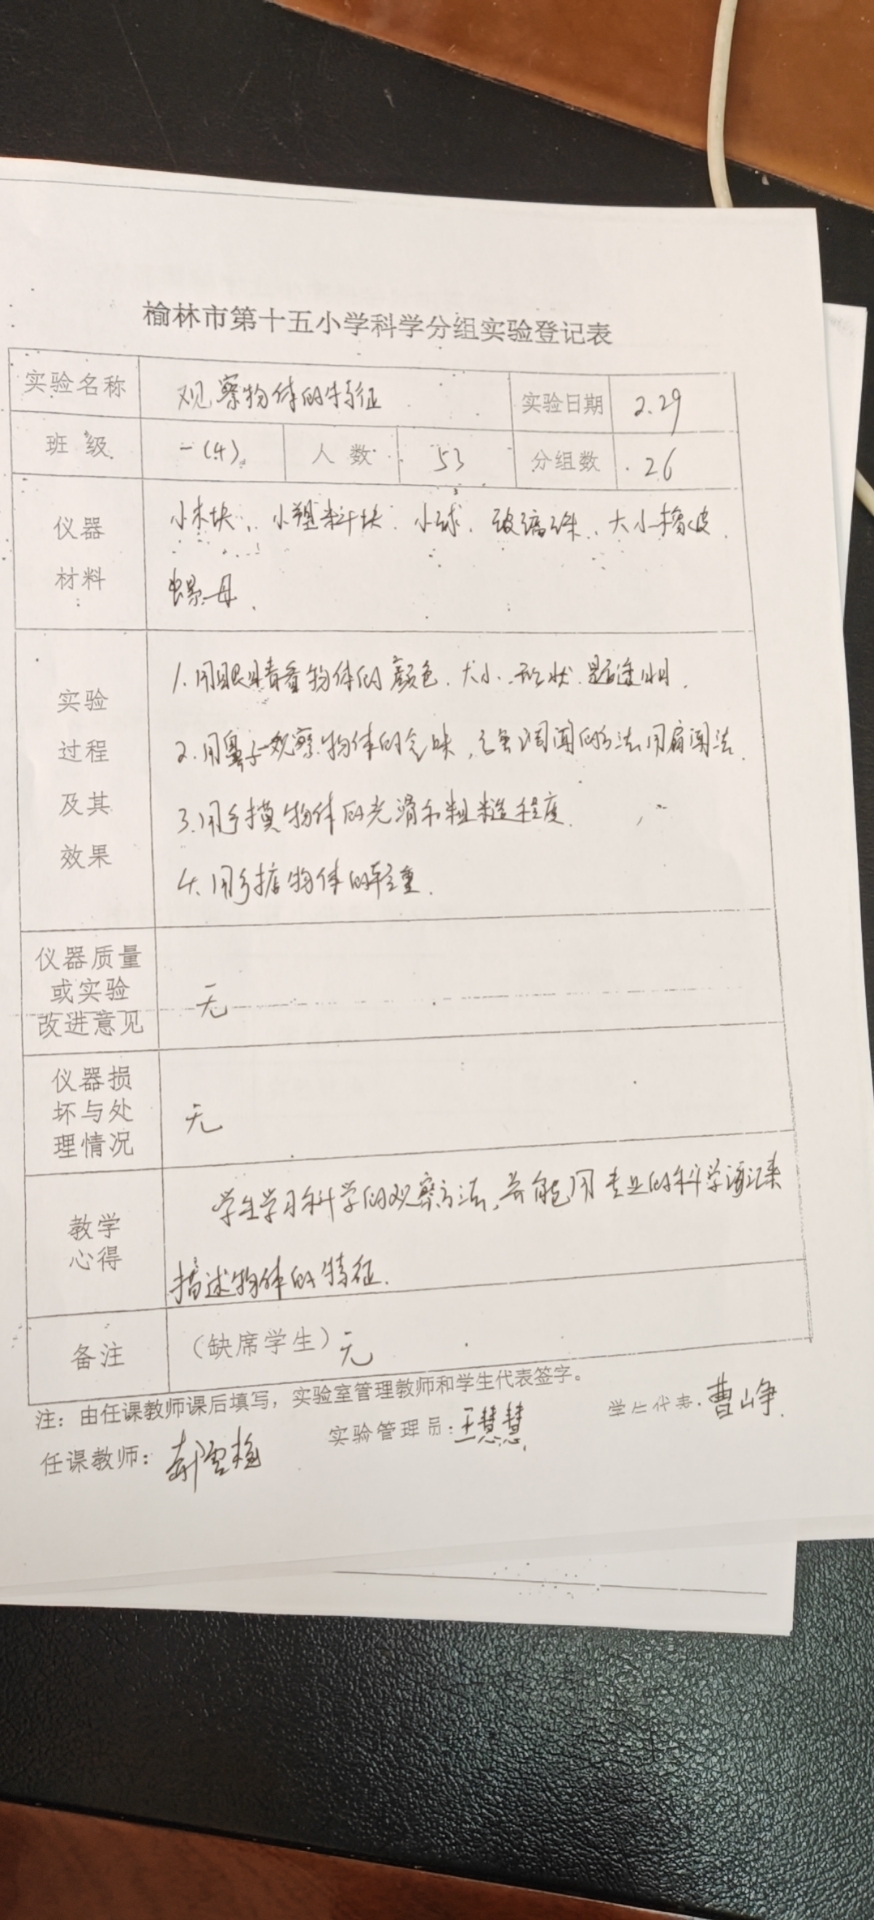 榆林市第十五小学科学分组实验登记表
实验名称 观察物体的特征 实验日期 2.29
班级 一(4) 人数 53 分组数 26
仪器材料 小木块、小塑料块、小球、玻璃珠、大小橡皮、
螺母、
实验过程及其效果
1.用眼睛看物体的颜色、大小、形状、是否透明.
2.用鼻子观察物体的气味, 闻的方法用扇闻法.
3.用手摸物体的光滑和粗糙程度.
4.用手掂物体的轻重.
仪器质量或实验改进意见 无
仪器损坏与处理情况 无
教学心得 学生学习科学的观察方法,并能用专业的科学词汇来
描述物体的特征.
备注 (缺席学生)无
注:由任课教师课后填写,实验室管理教师和学生代表签字。
任课教师: 实验管理员:王慧慧 学生代表:曹山争